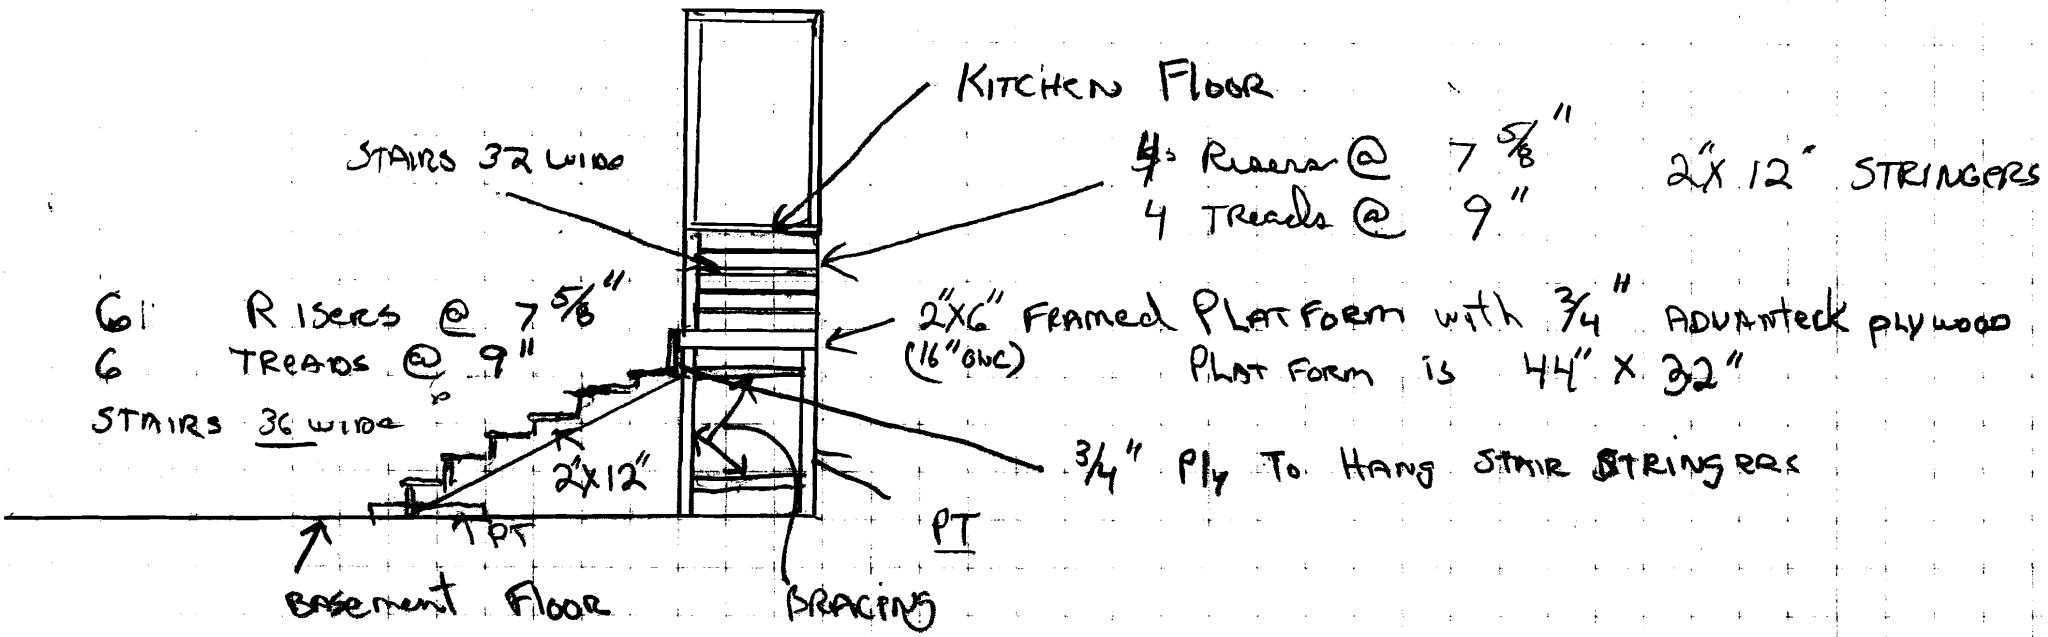 KITCHEN FLOOR
STAIRS 32 WIDE
4 Risers @ 7 5/8"
4 TReads @ 9"
2"X 12" STRINGERS
6 RISERS @ 7 5/8"
6 TREADS @ 9"
STAIRS 36 WIDE
2"X6" FRAMED PLATFORM with 3/4" ADVANTECK plywood
(16" ONC) PLATFORM is 44" X 32"
2"X12"
3/4" Ply To HANG STAIR STRINGERS
PT
PT
BASEMENT FLOOR
BRACING